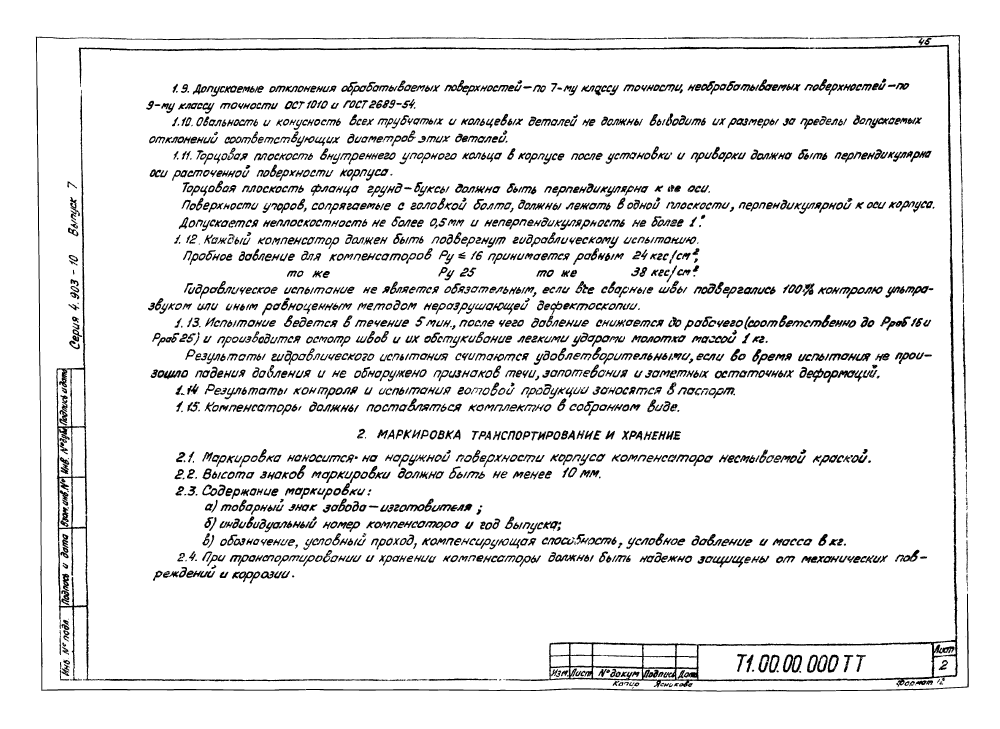 45
1.9. Допускаемые отклонения обрабатываемых поверхностей — по 7-му классу точности, необрабатываемых поверхностей — по
9-му классу точности ОСТ 1010 и ГОСТ 2689-54.
1.10. Овальность и конусность всех трубчатых и кольцевых деталей не должны выводить их размеры за пределы допускаемых
отклонений соответствующих диаметров этих деталей.
1.11. Торцовая плоскость внутреннего упорного кольца в корпусе после установки и приварки должна быть перпендикулярна
оси расточенной поверхности корпуса.
Торцовая плоскость фланца грунд-буксы должна быть перпендикулярна к ее оси.
Поверхности упоров, сопрягаемые с головкой болта, должны лежать в одной плоскости, перпендикулярной к оси корпуса.
Допускается неплоскостность не более 0,5 мм и неперпендикулярность не более 1°.
1.12. Каждый компенсатор должен быть подвергнут гидравлическому испытанию.
Пробное давление для компенсаторов Ру ≤ 16 принимается равным 24 кгс/см²,
то же Ру 25 то же 38 кгс/см².
Гидравлическое испытание не является обязательным, если все сварные швы подвергались 100% контролю ультра-
звуком или иным равноценным методом неразрушающей дефектоскопии.
1.13. Испытание ведется в течение 5 мин., после чего давление снижается до рабочего (соответственно до Рраб 16 и
Рраб 25) и производится осмотр швов и их обстукивание легкими ударами молотка массой 1 кг.
Результаты гидравлического испытания считаются удовлетворительными, если во время испытания не прои-
зошло падения давления и не обнаружено признаков течи, запотевания и заметных остаточных деформаций.
1.14 Результаты контроля и испытания готовой продукции заносятся в паспорт.
1.15. Компенсаторы должны поставляться комплектно в собранном виде.
2. МАРКИРОВКА ТРАНСПОРТИРОВАНИЕ И ХРАНЕНИЕ
2.1. Маркировка наносится на наружной поверхности корпуса компенсатора несмываемой краской.
2.2. Высота знаков маркировки должна быть не менее 10 мм.
2.3. Содержание маркировки:
а) товарный знак завода — изготовителя;
б) индивидуальный номер компенсатора и год выпуска;
в) обозначение, условный проход, компенсирующая способность, условное давление и масса в кг.
2.4. При транспортировании и хранении компенсаторы должны быть надежно защищены от механических пов-
реждений и коррозии.
Серия 4.903-10 Выпуск 7
Подпись и дата
Инв. № дубл.
Взам. инв. №
Подпись и дата
Инв. № подл.
Изм. Лист № докум Подпись Дата
Т1.00.00.000 ТТ
Лист
2
Копир Ясникова
Формат 12